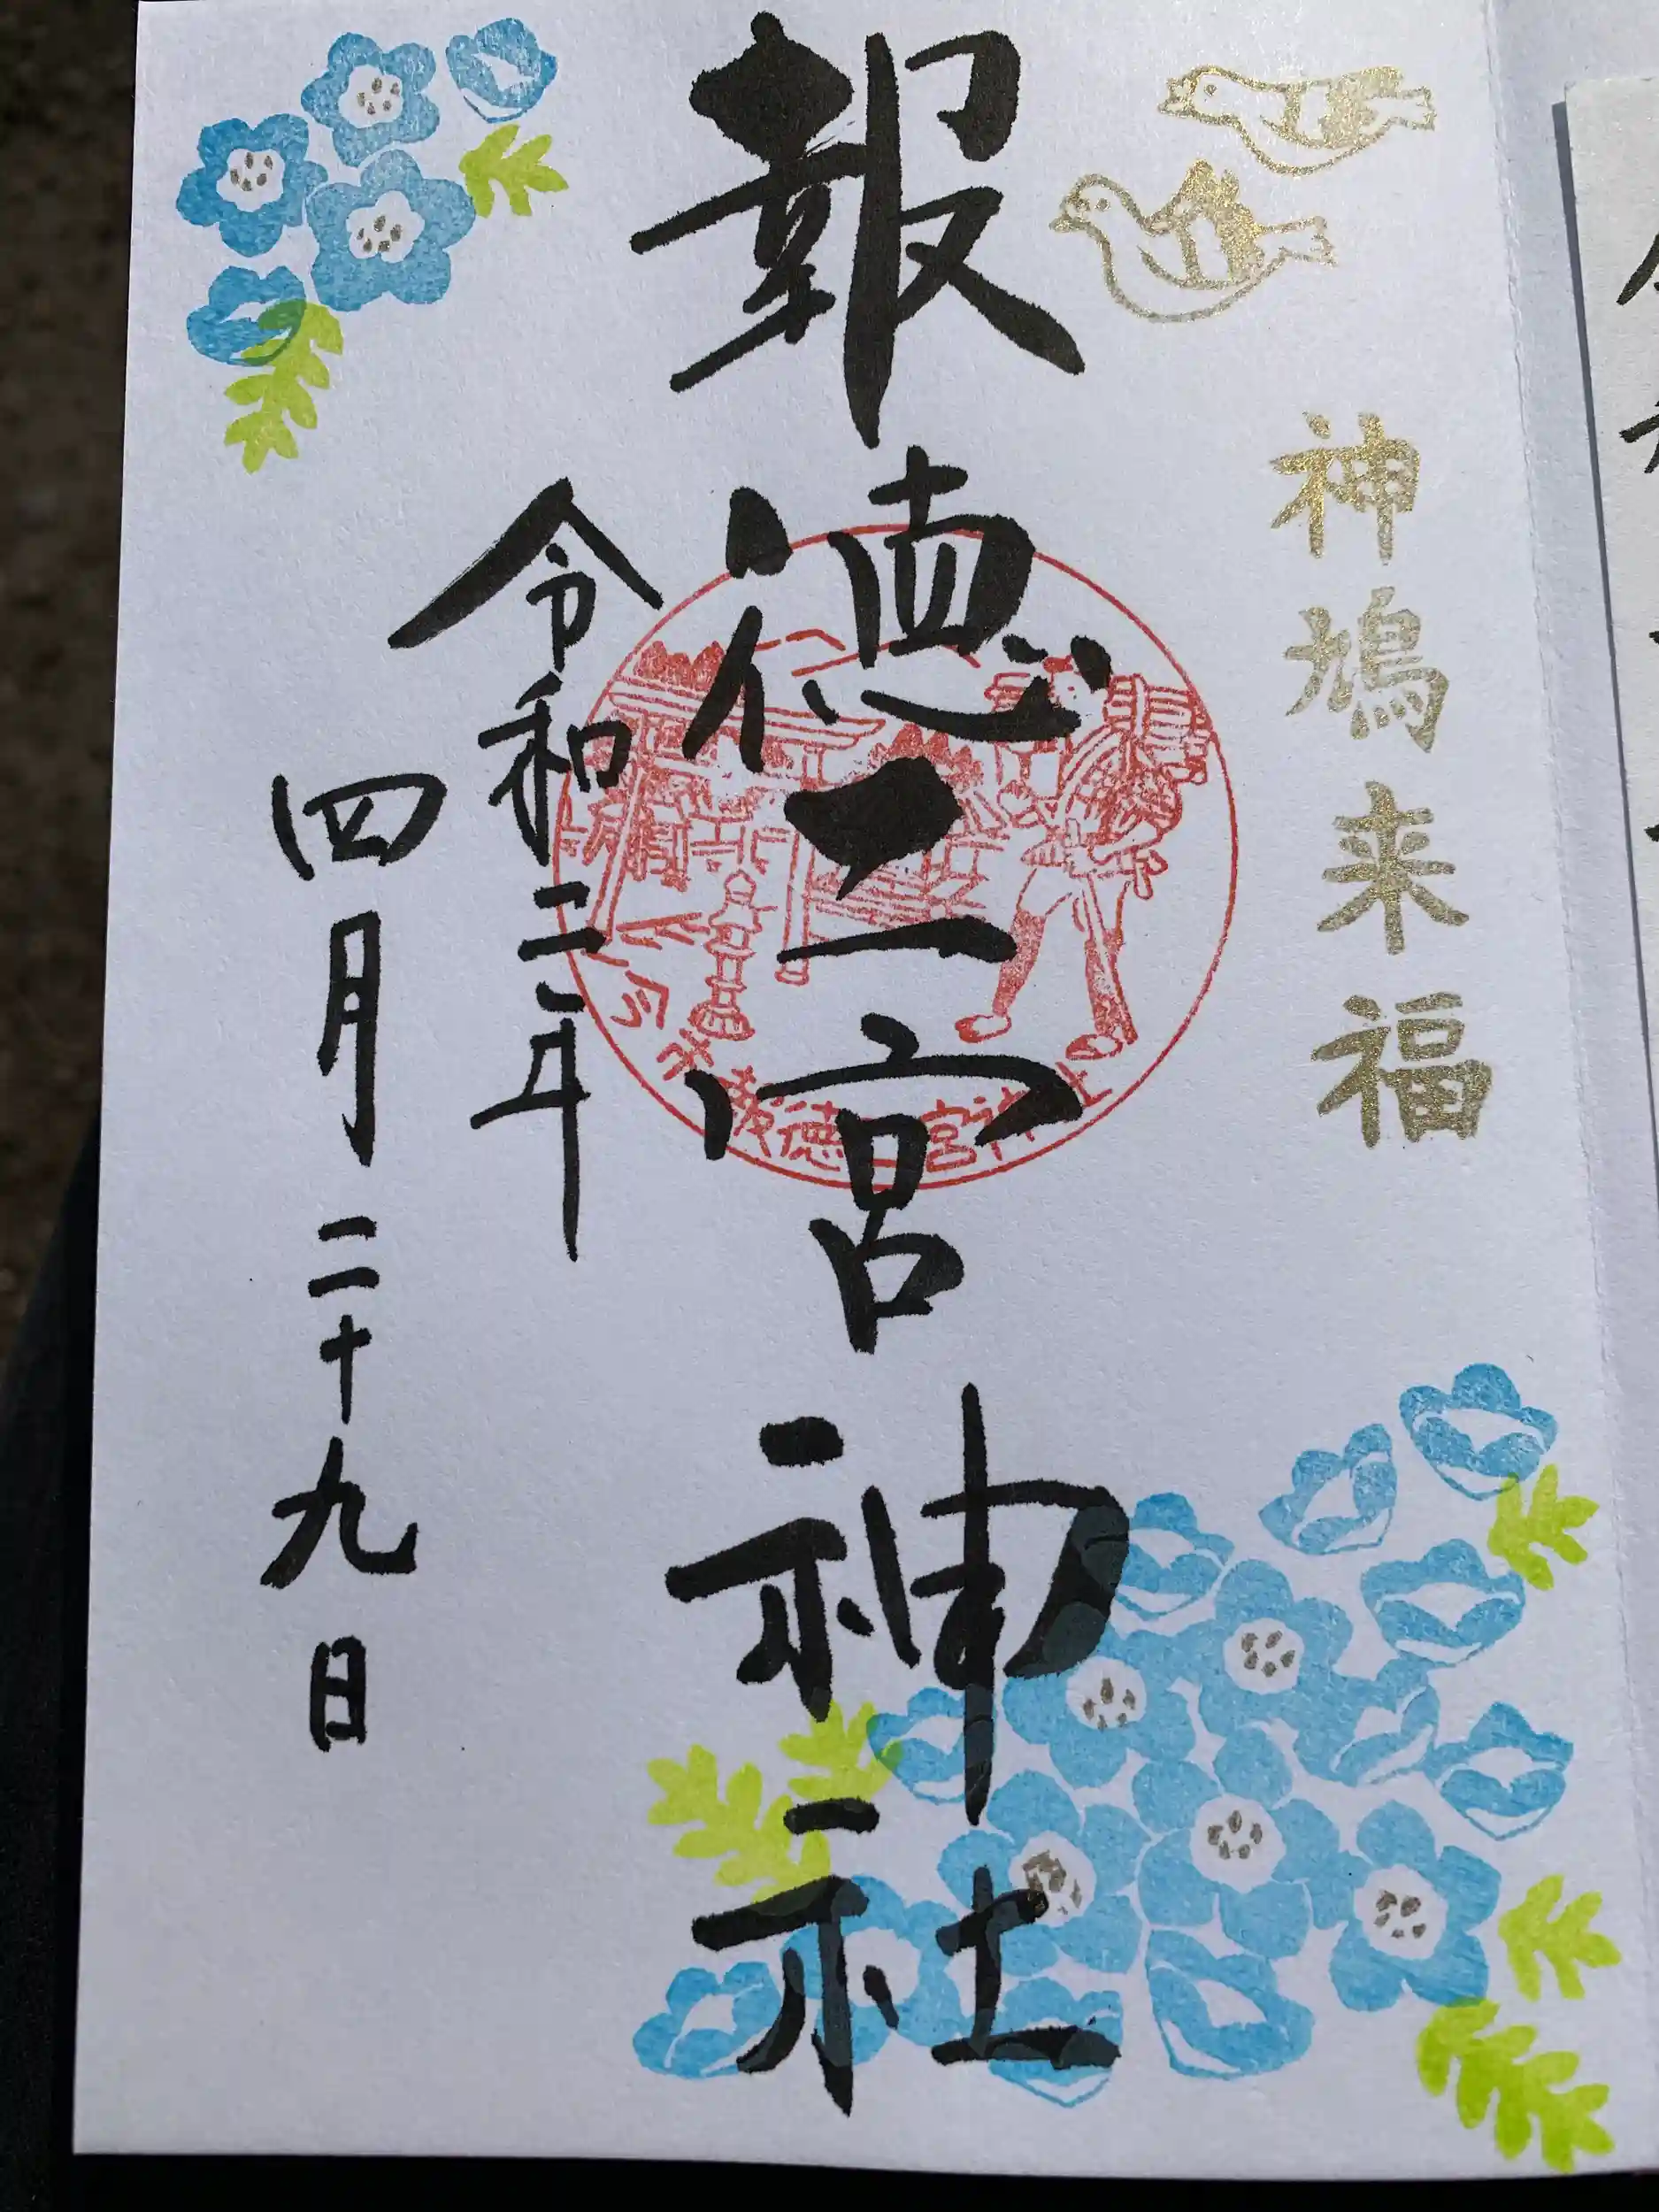 神鳩来福
報徳二宮神社
令和三年
四月二十九日
報徳二宮神社